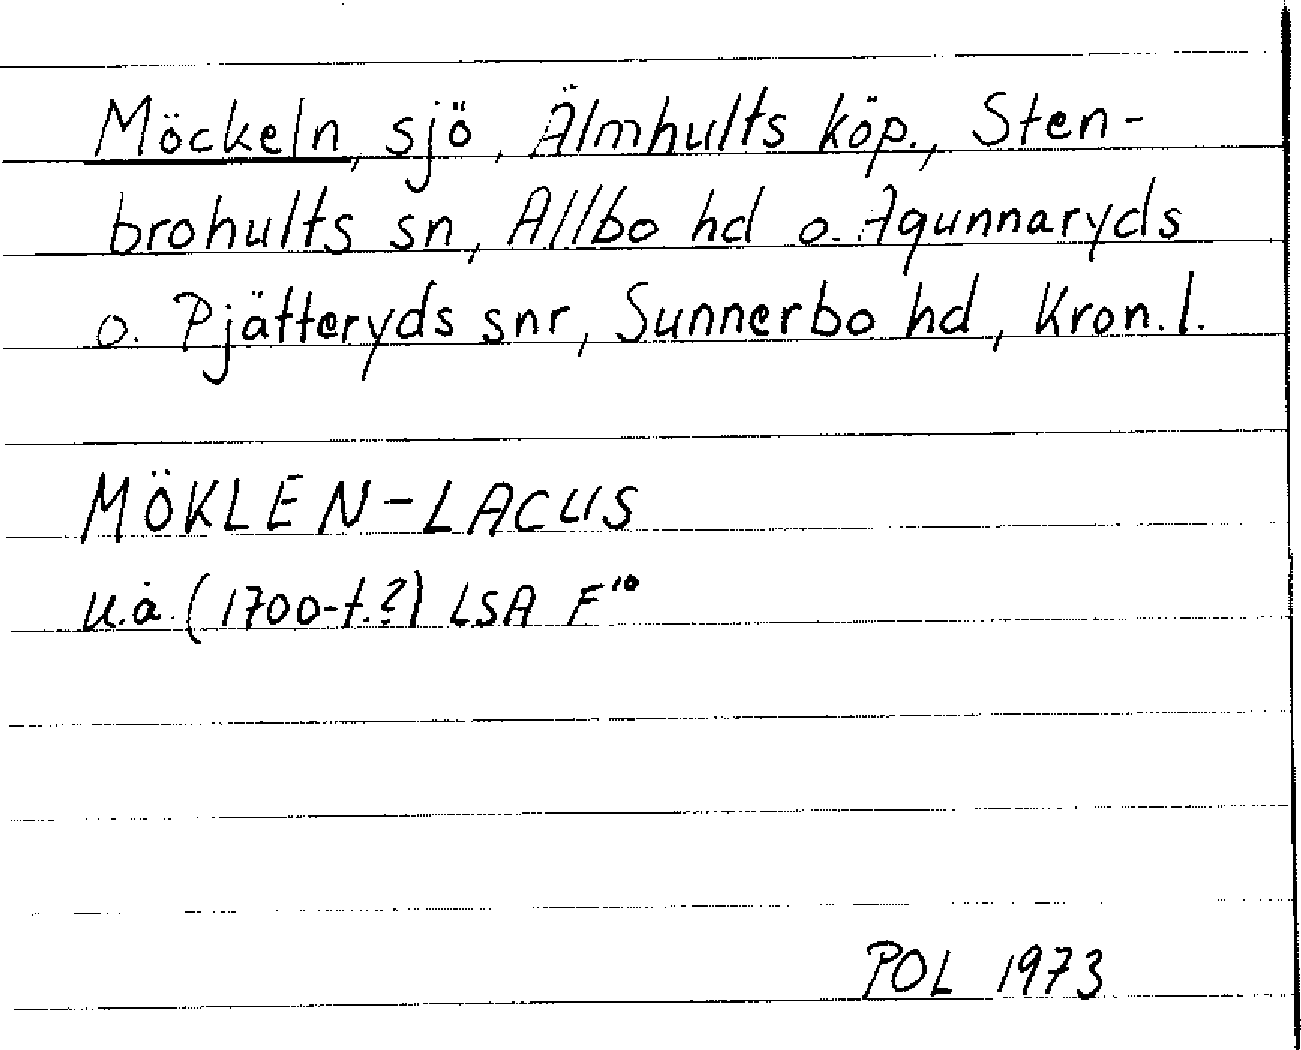 Möckeln, sjö, Älmhults köp., Sten-
brohults sn, Allbo hd o. Agunnaryds
o. Pjätteryds snr, Sunnerbo hd, Kron. l.
MÖKLEN-LACUS
u.å. (1700-t.?) LSA F"10
POL 1973